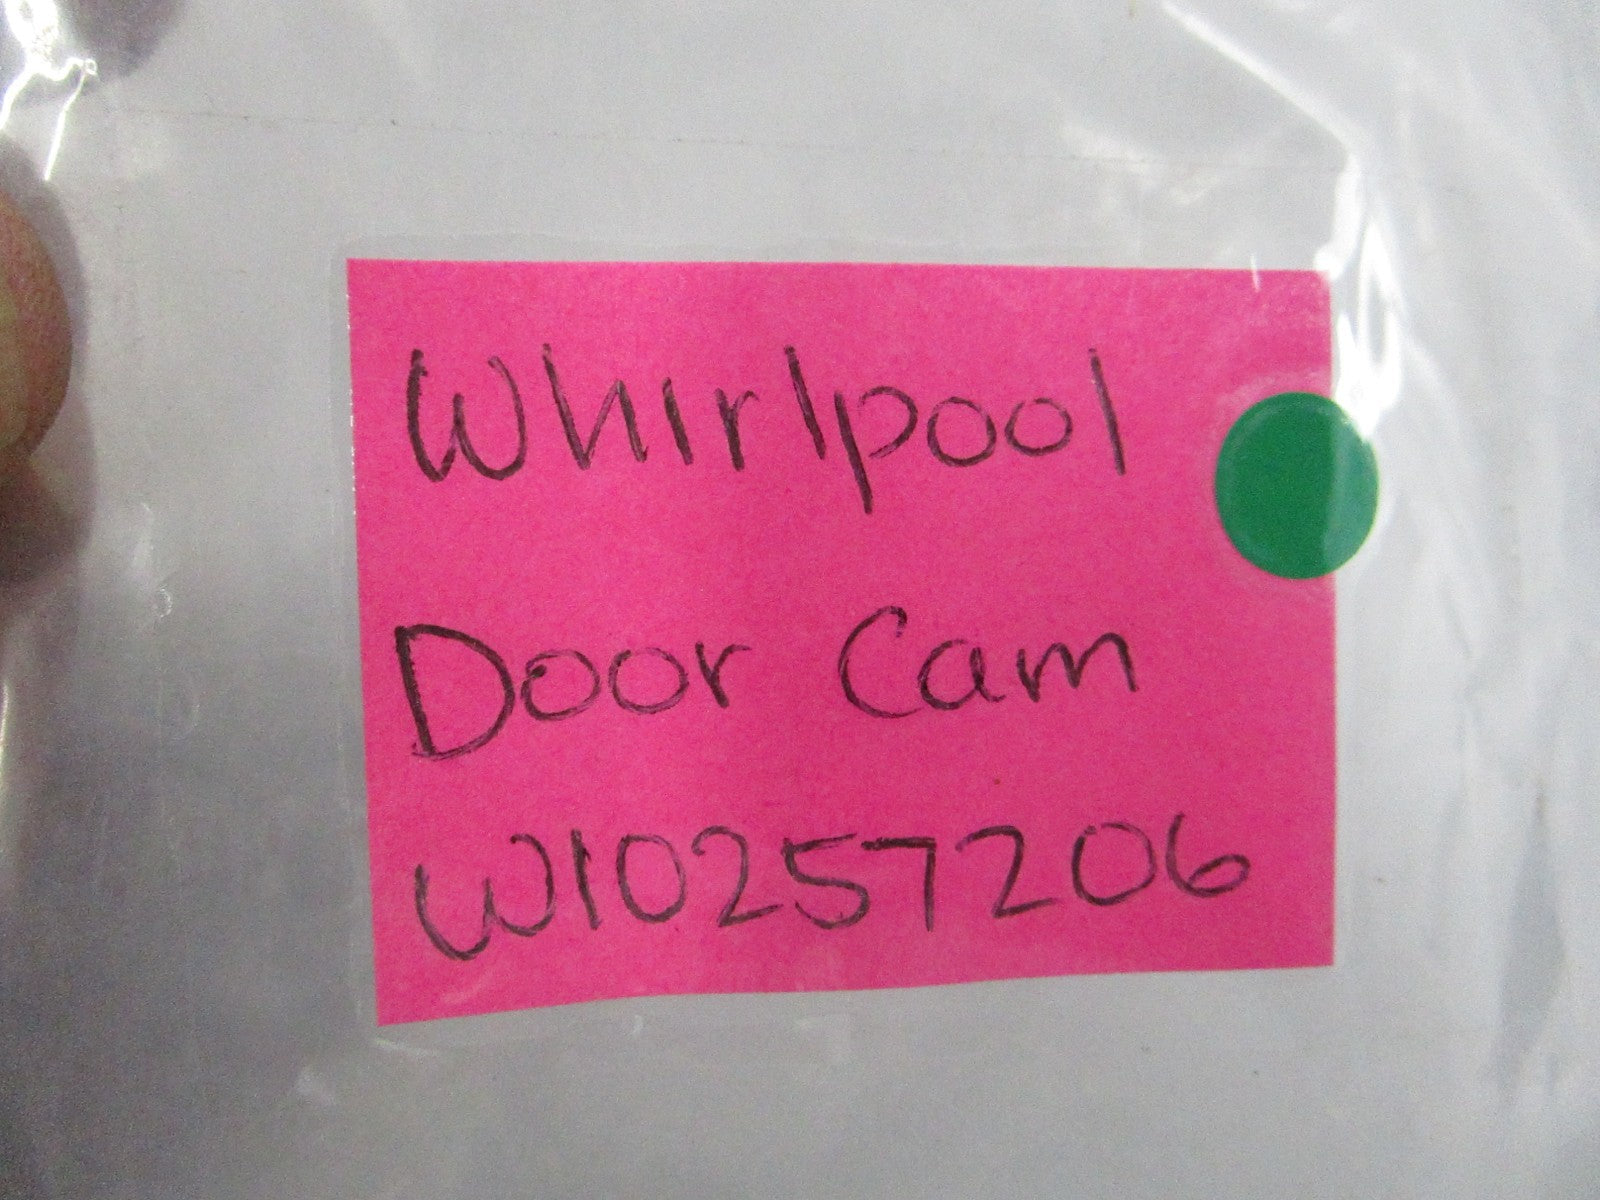 Whirlpool
Door Cam
W10257206